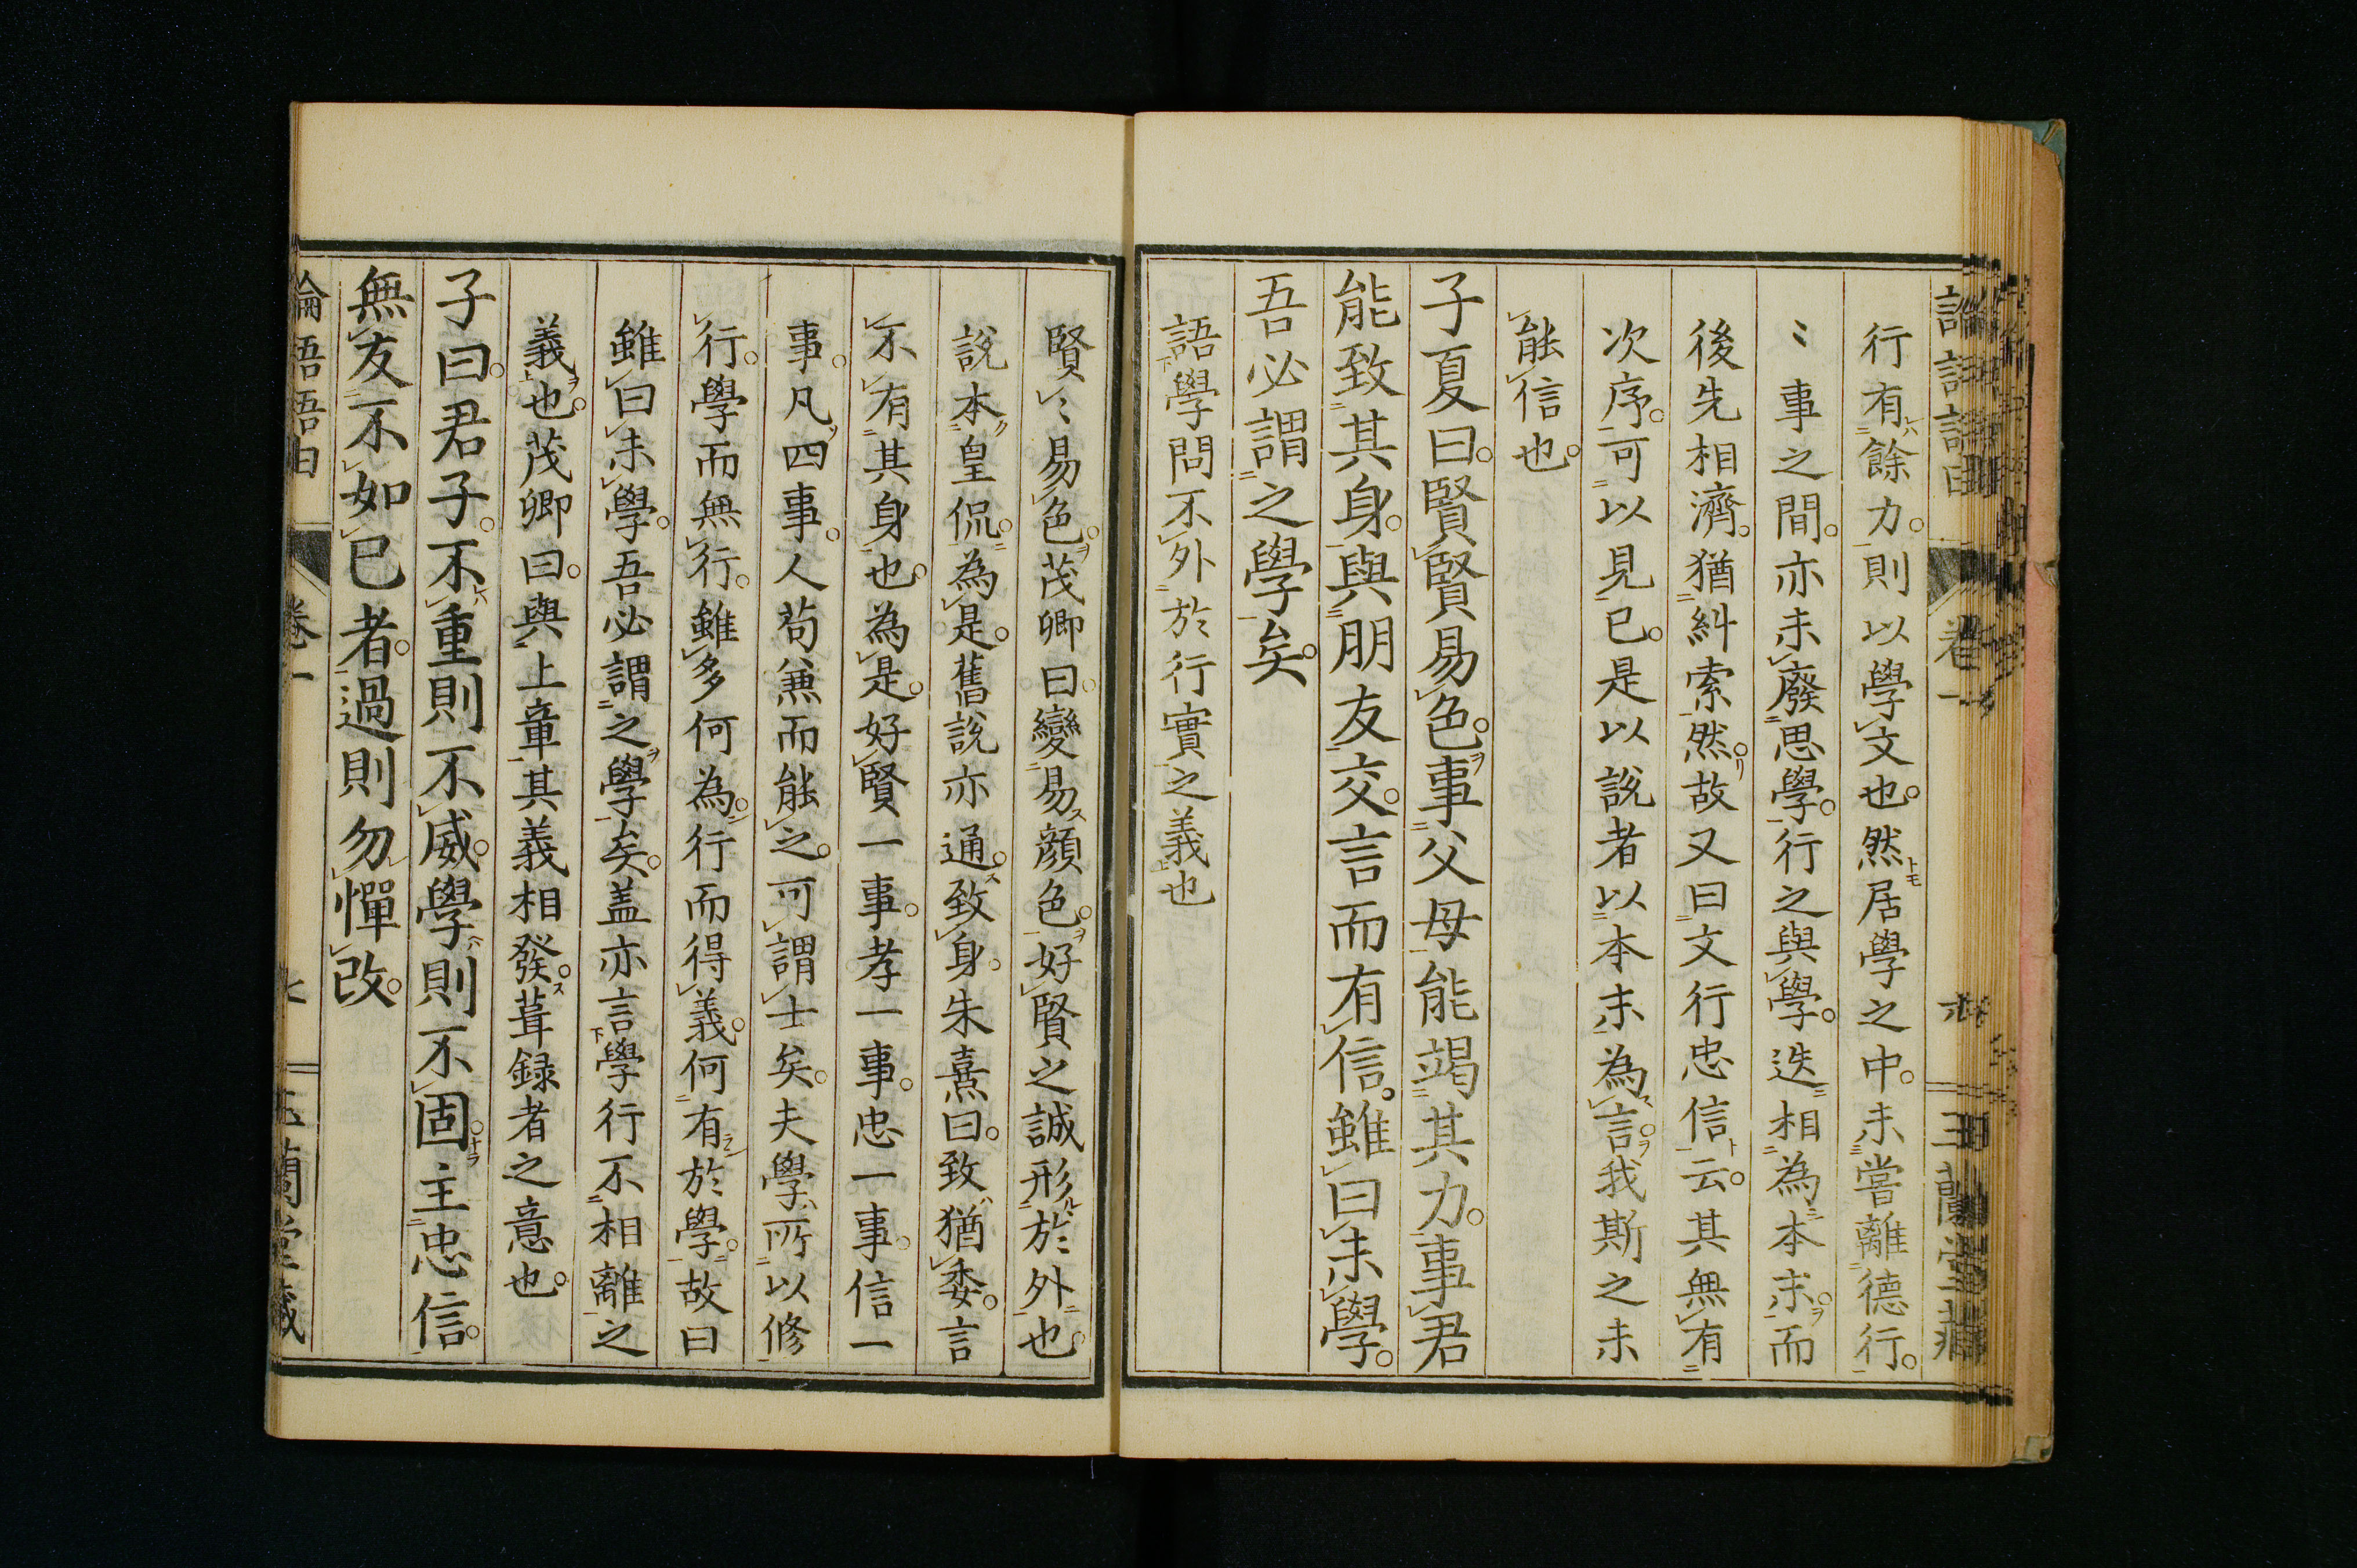 行有餘力。則以學文也。然居學之中。未嘗離德行。
〻事之間。亦未廢思學。行之與學。迭相為本末。而
後先相濟。猶糾索然。故又曰文行忠信云。其無有
次序。可以見已。是以說者以本末為言。我斯之未
能信也。
子夏曰。賢賢易色。事父母能竭其力。事君
能致其身。與朋友交。言而有信。雖曰未學。
吾必謂之學矣。
語學問不外於行實之義也
賢〻易色。茂卿曰。變易顏色。好賢之誠形於外也。
說本皇侃。為是。舊說亦通。致身。朱熹曰。致猶委。言
不有其身也。為是。好賢一事。孝一事。忠一事。信一
事。凡四事。人苟兼而能之。可謂士矣。夫學所以修
行。學而無行。雖多何為。行而得義。何有於學。故曰
雖曰未學。吾必謂之學矣。盖亦言學行不相離之
義也。茂卿曰。與上章其義相發。葺録者之意也。
子曰。君子。不重則不威。學則不固。主忠信。
無友不如已者。過則勿憚改。
論語語由 卷一 七 玉蘭堂藏